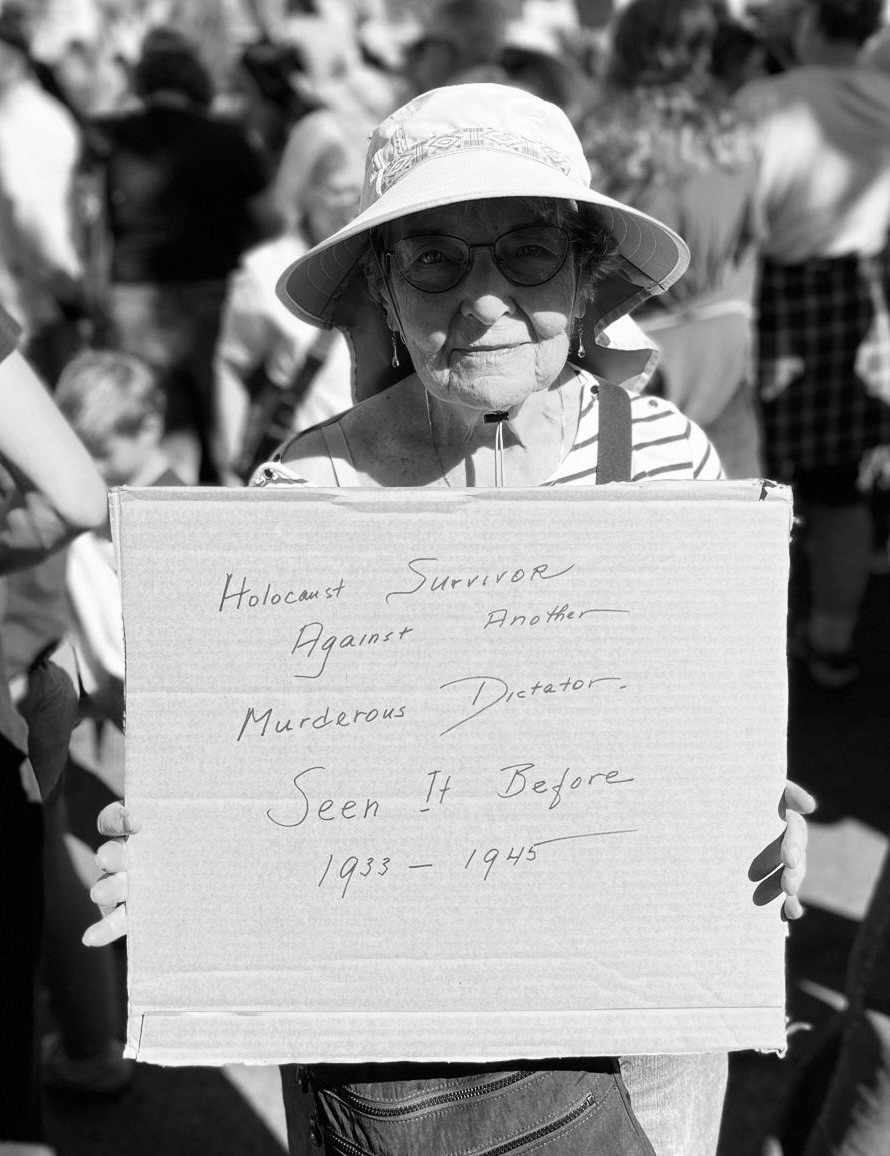 Holocaust Survivor
Against Another
Murderous Dictator.
Seen It Before
1933 - 1945